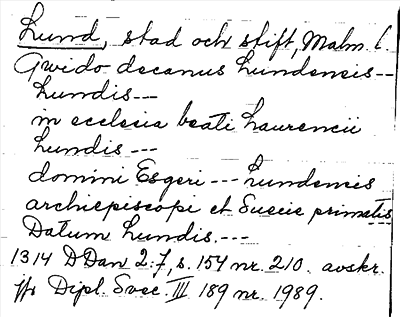 Lund, stad och stift, Malm. l.
Gwido decanus Lundensis---
Lundis---
in ecclesia beati Laurencii
Lundis---
domini Esgeri --- Lundensis
archiepiscopi et Suecie primatis
Datum Lundis.---
1314 D Dan 2:7, s. 154 nr. 210. avskr.
jfr Dipl. Svec. III 189 nr. 1989.